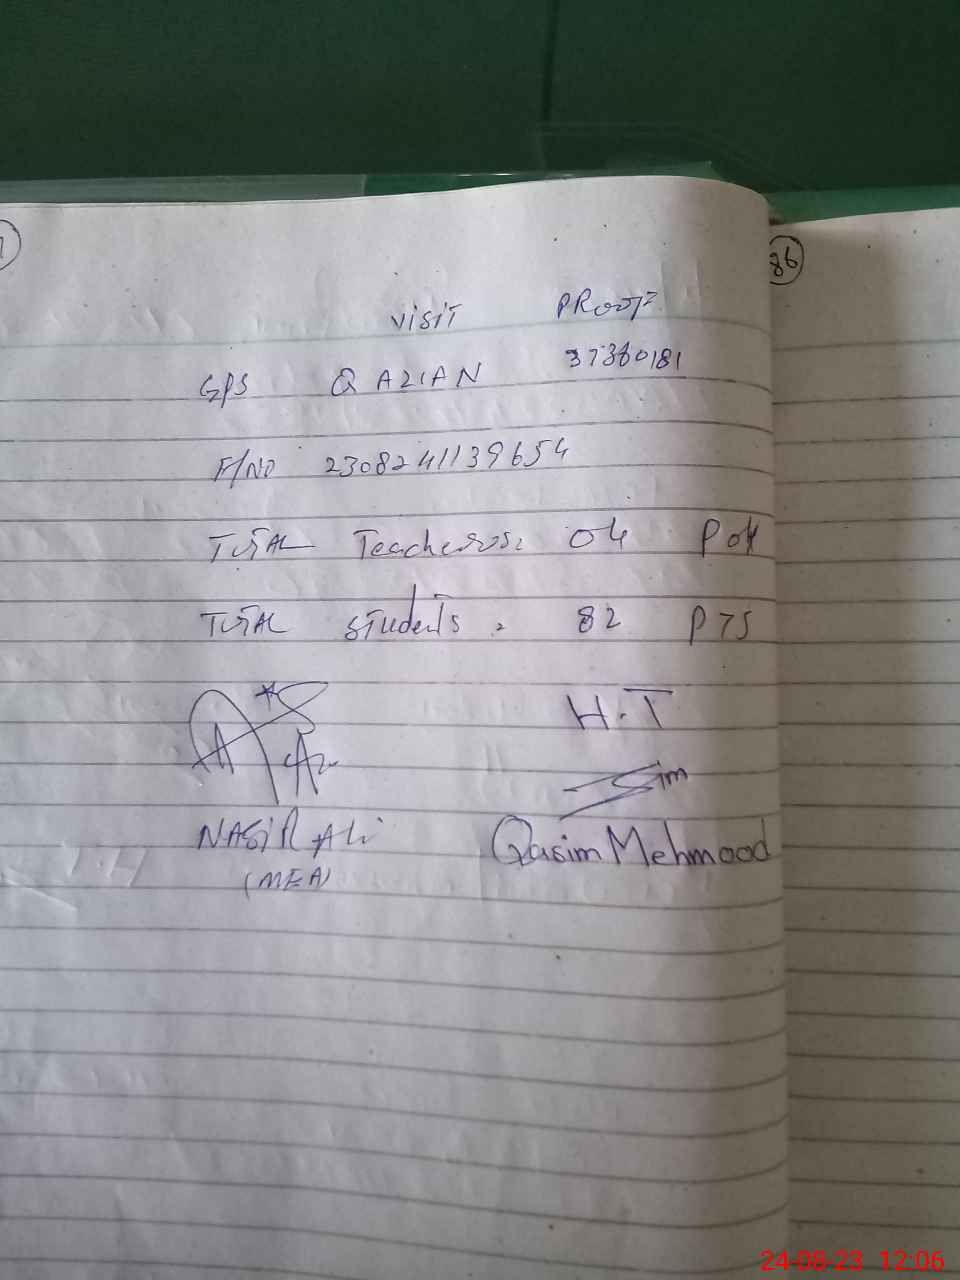 86
VISIT PROOF
GPS QAZIAN 37380181
F/NO 2308241139654
TOTAL Teachers: 04 P 04
TOTAL Students: 82 P 75
H.T
NASIR Ali
Qasim Mehmood
(MEA)
24-08-23 12:06